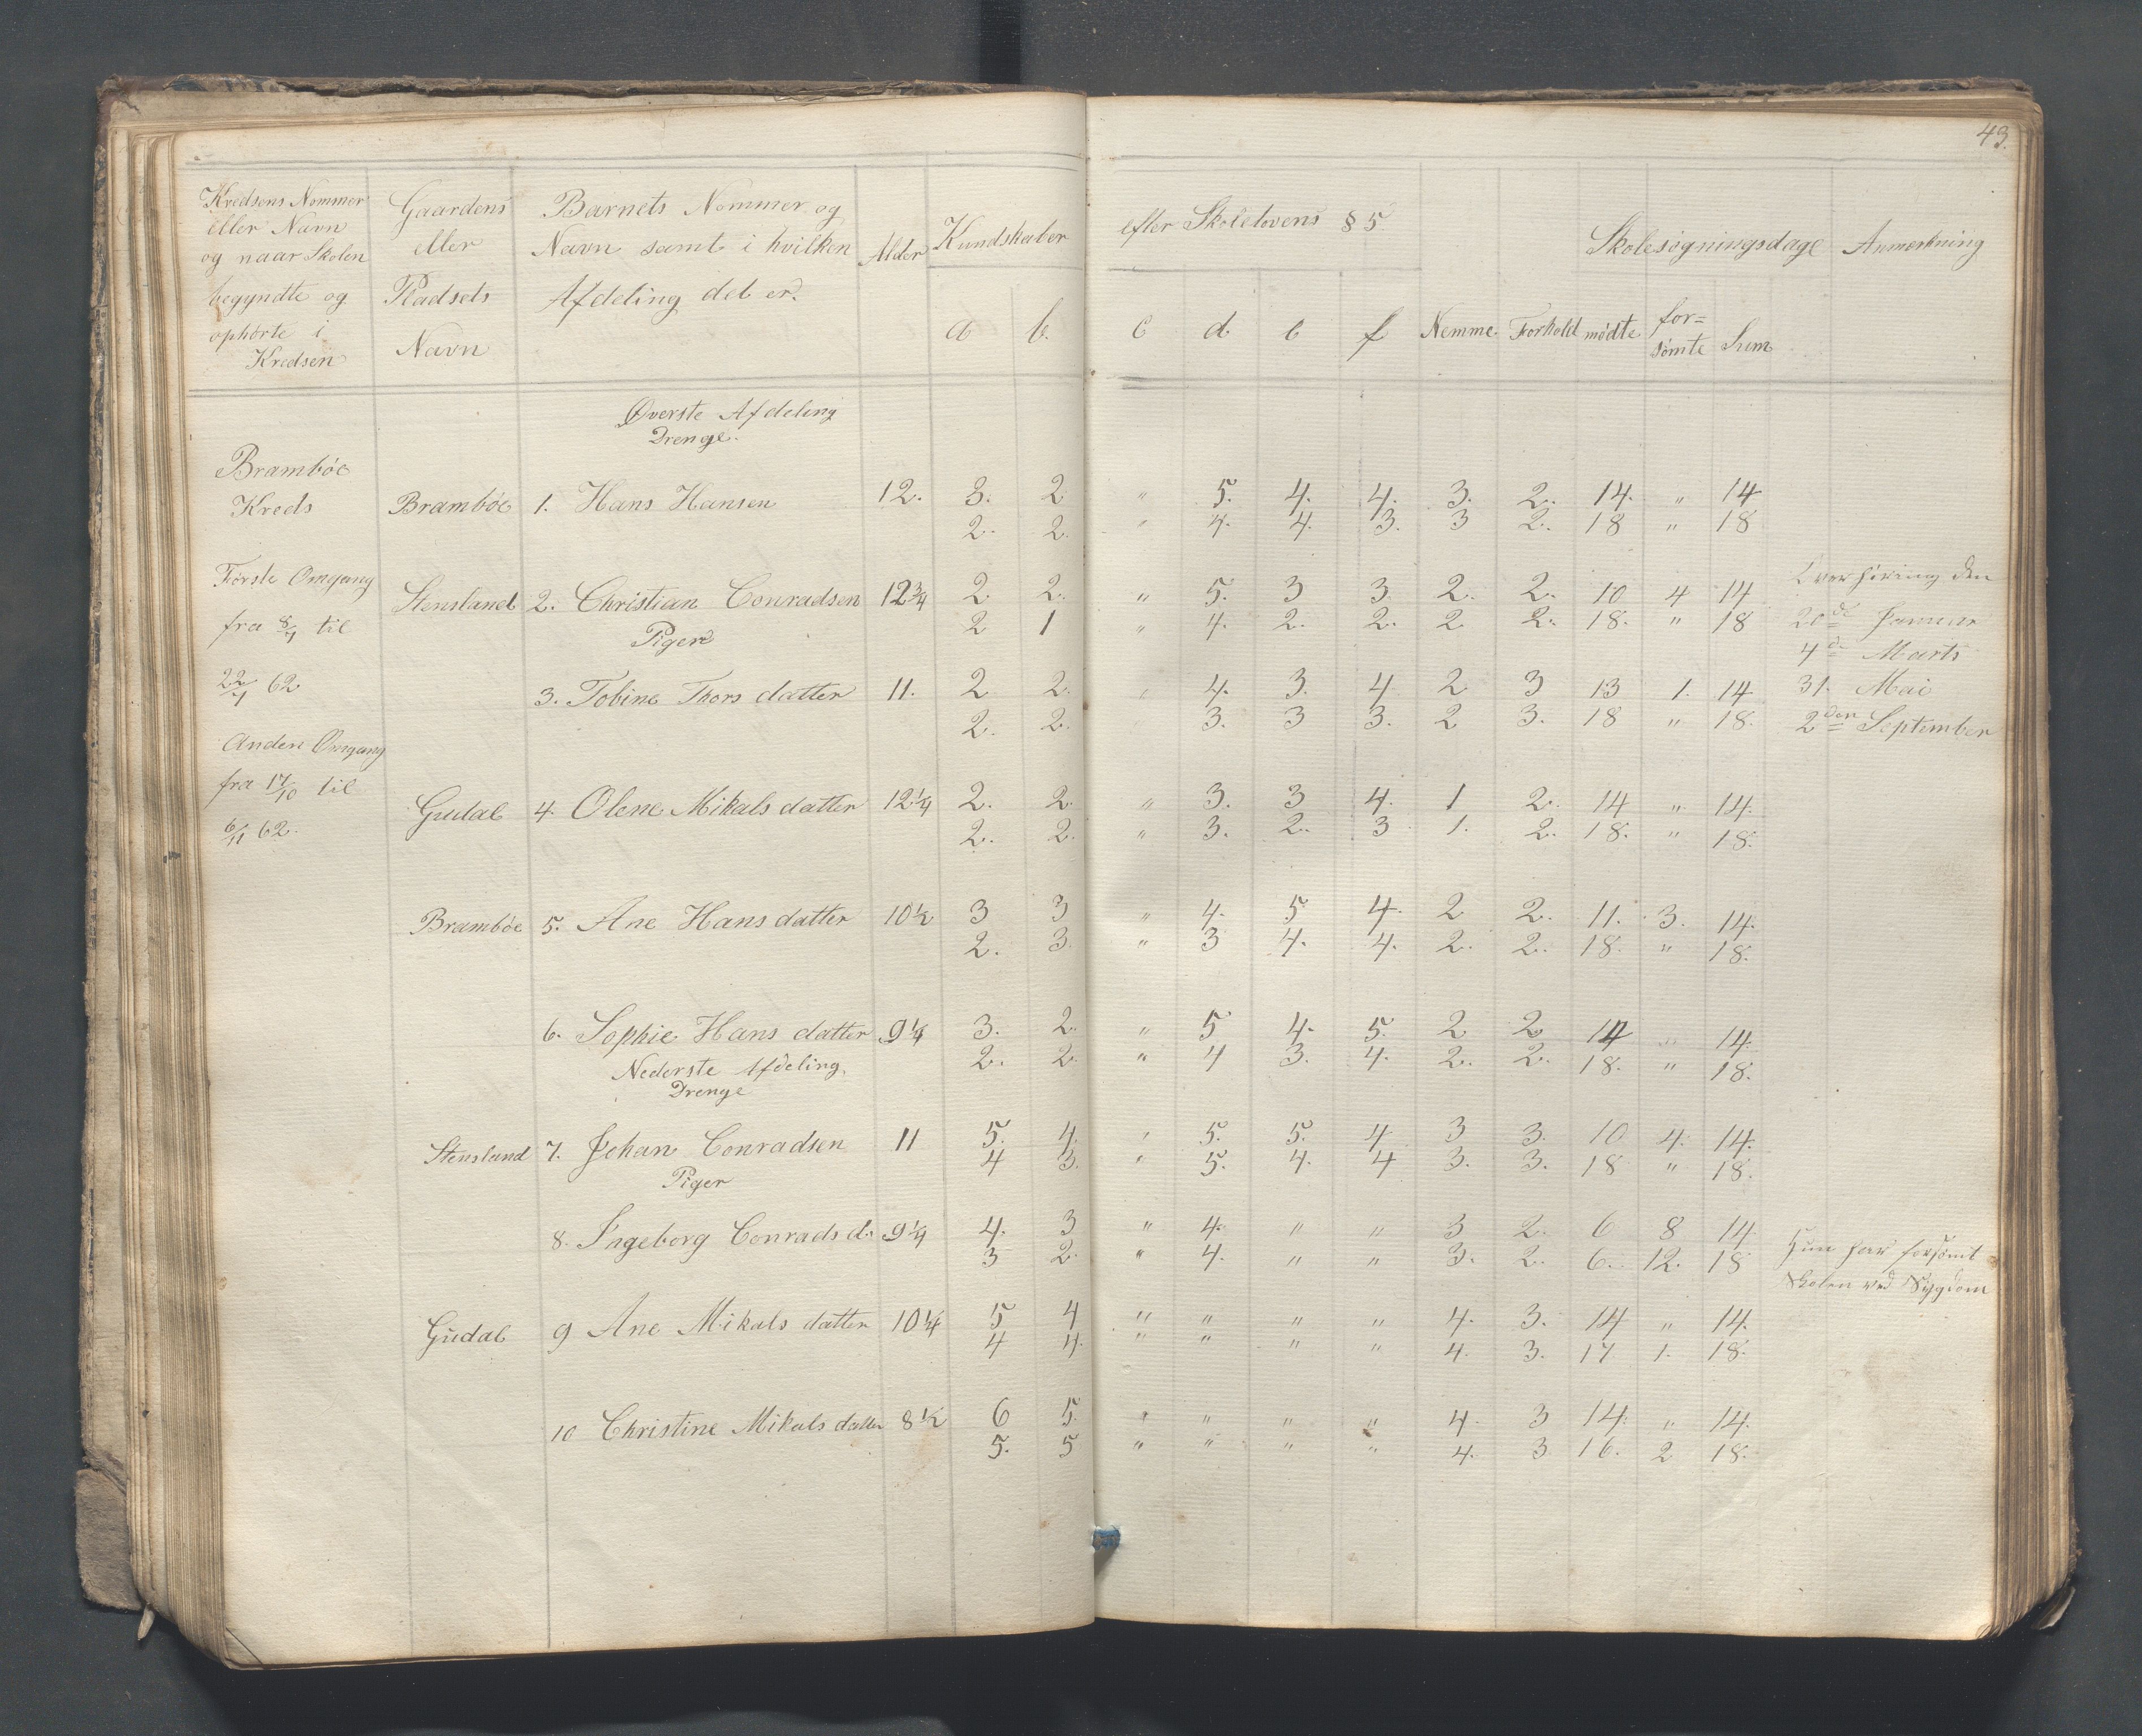 43.
Kredsens Nommer eller Navn og naar Skolen begyndte og ophørte i Kredsen
Gaardens eller Pladsets Navn
Barnets Nommer og Navn samt i hvilken Afdeling det er.
Alder
Kundskaber efter Skolelovens § 5.
a b. c d. e f Nemme Forhold
Skolesøgningsdage
mødte for= sømte Sum
Anmerkning
Øverste Afdeling
Drenge.
Brambøe
Kreds
Brambøe 1. Hans Hansen 12. 3. 2 " 5. 4. 4. 3. 2. 14. " 14
2. 2. " 4. 4. 3. 3 2. 18 " 18
Første Omgang
fra 8/4 til
22/4 62
Anden Omgang
fra 17/10 til
6/11 62.
Stensland 2. Christian Conradsen 12 3/4 2. 2. " 5. 3 3. 2. 2. 10 4 14
2 1 " 4. 2. 2. 2 2. 18. " 18
Overhøring den
20de Januar
4de Marts
31. Mai
2den September
Piger
3. Tobine Thors datter 11. 2 2. " 4. 3. 4 2 3 13 1. 14
2. 2. 3. 3 3. 2 3. 18 " 18.
Gudal 4. Olene Mikals datter 12 1/4 2. 2. " 3. 3 4. 1 2. 14 " 14.
2. 2. " 3. 2. 3 1. 2. 18. " 18.
Brambøe 5. Ane Hans datter 10 1/2 3 3 " 4. 5. 4. 2 2. 11. 3. 14.
2. 3. " 3 4. 4. 2. 2. 18. " 18.
6. Sophie Hans datter 9 1/4 3. 2. " 5 4. 5. 2 2 14 " 14.
2. 2. " 4 3. 4. 2. 2. 18. " 18.
Nederste Afdeling.
Drenge
Stensland 7. Johan Conradsen 11 5. 4. " 5. 5. 4 3 3. 10 4. 14.
4 3. " 5. 4. 4 3. 3. 18 " 18.
Piger
8. Ingeborg Conrads d. 9 1/4 4. 3 " 4. " " 3 2. 6 8 14.
3 2. " 4. " " 3. 2. 6. 12. 18
Hun har forsømt
Skolen ved Sygdom
Gudal 9 Ane Mikals datter 10 1/4 5 4 " " " " 4. 3. 14 " 14.
4 4. " " " " 4. 3. 17 1. 18.
10 Christine Mikals datter 8 1/2 6 5. " " " " 4. 3 14. " 14.
5. 5 " " " " 4. 3 16. 2 18.